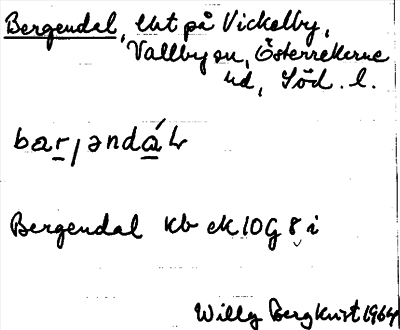 Bergendal, Ubt på Vickelby,
Vallby sn, Österrekarne
hd, Söd. l.
bar,əndáL
Bergendal Kb ek 10G 8 i
Willy Bergkvist 1964